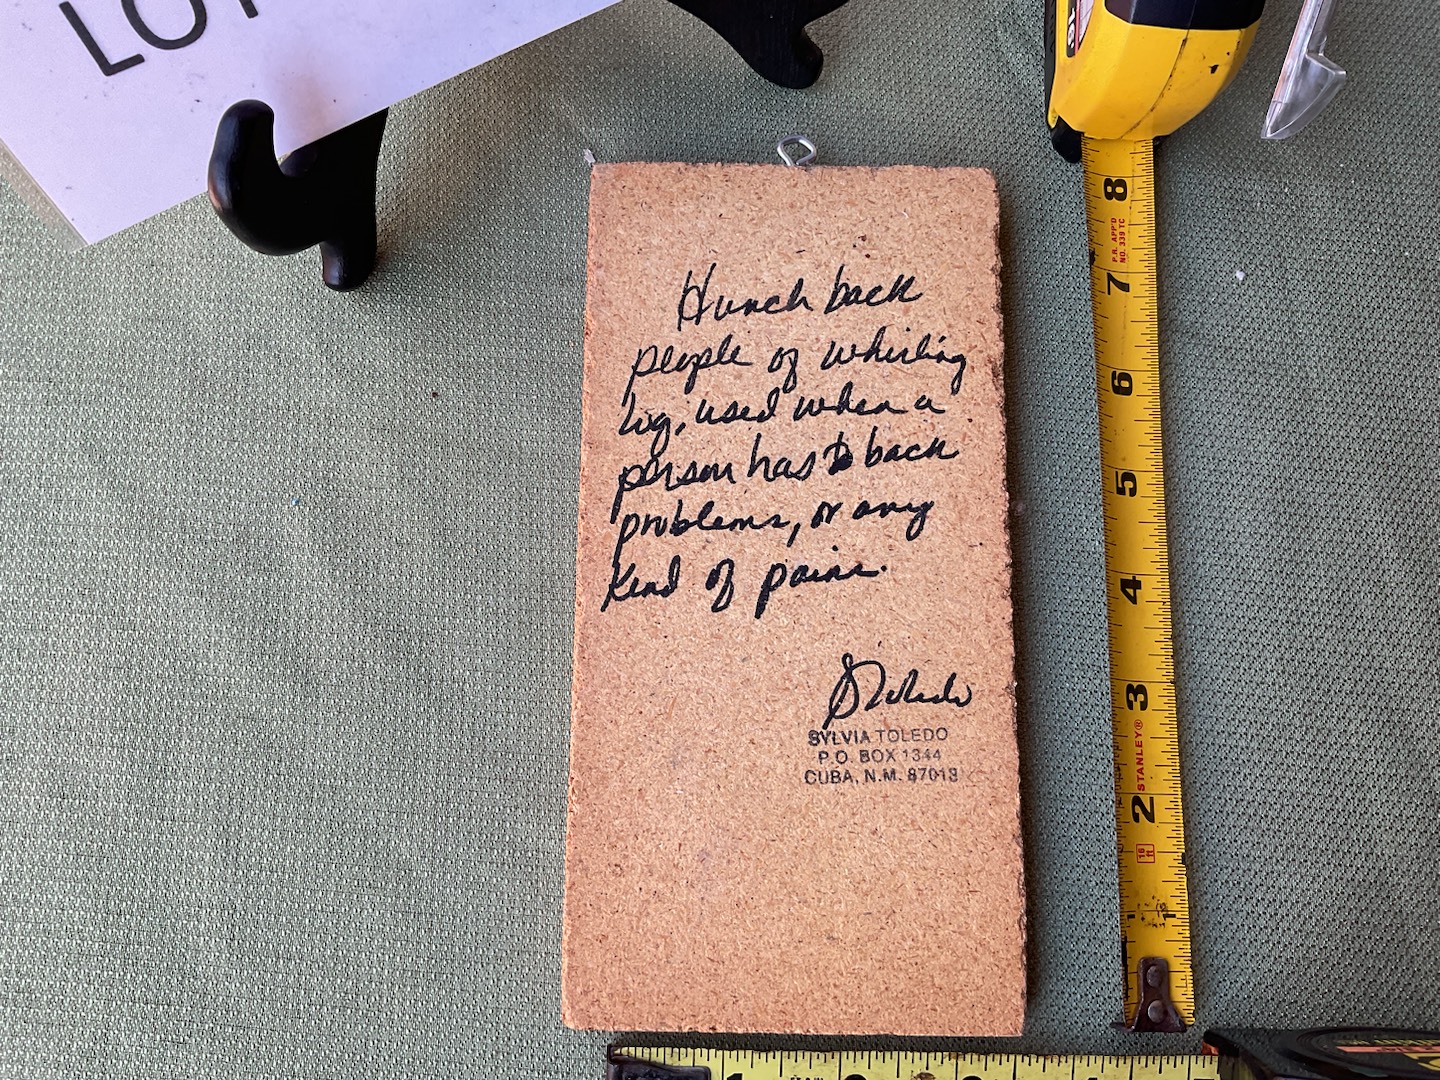 LOT
Hunch back
people of whirling
log, used when a
person has back
problems, or any
kind of pains.
SToledo
SYLVIA TOLEDO
P.O. BOX 1344
CUBA, N.M. 87013
8
P.R. APP'D
NO. 339 TC
7
6
5
4
3
STANLEY®
2
16 ft
1
1 2 3 4 5